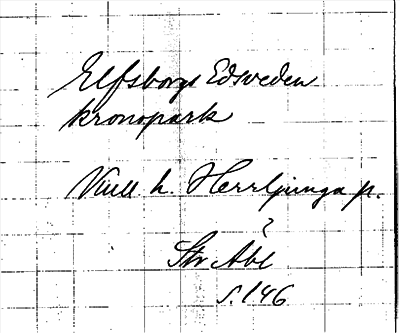 Elfsborgs Edsveden
kronopark
h. Herrljunga p.
?
Str Abl
s. 146